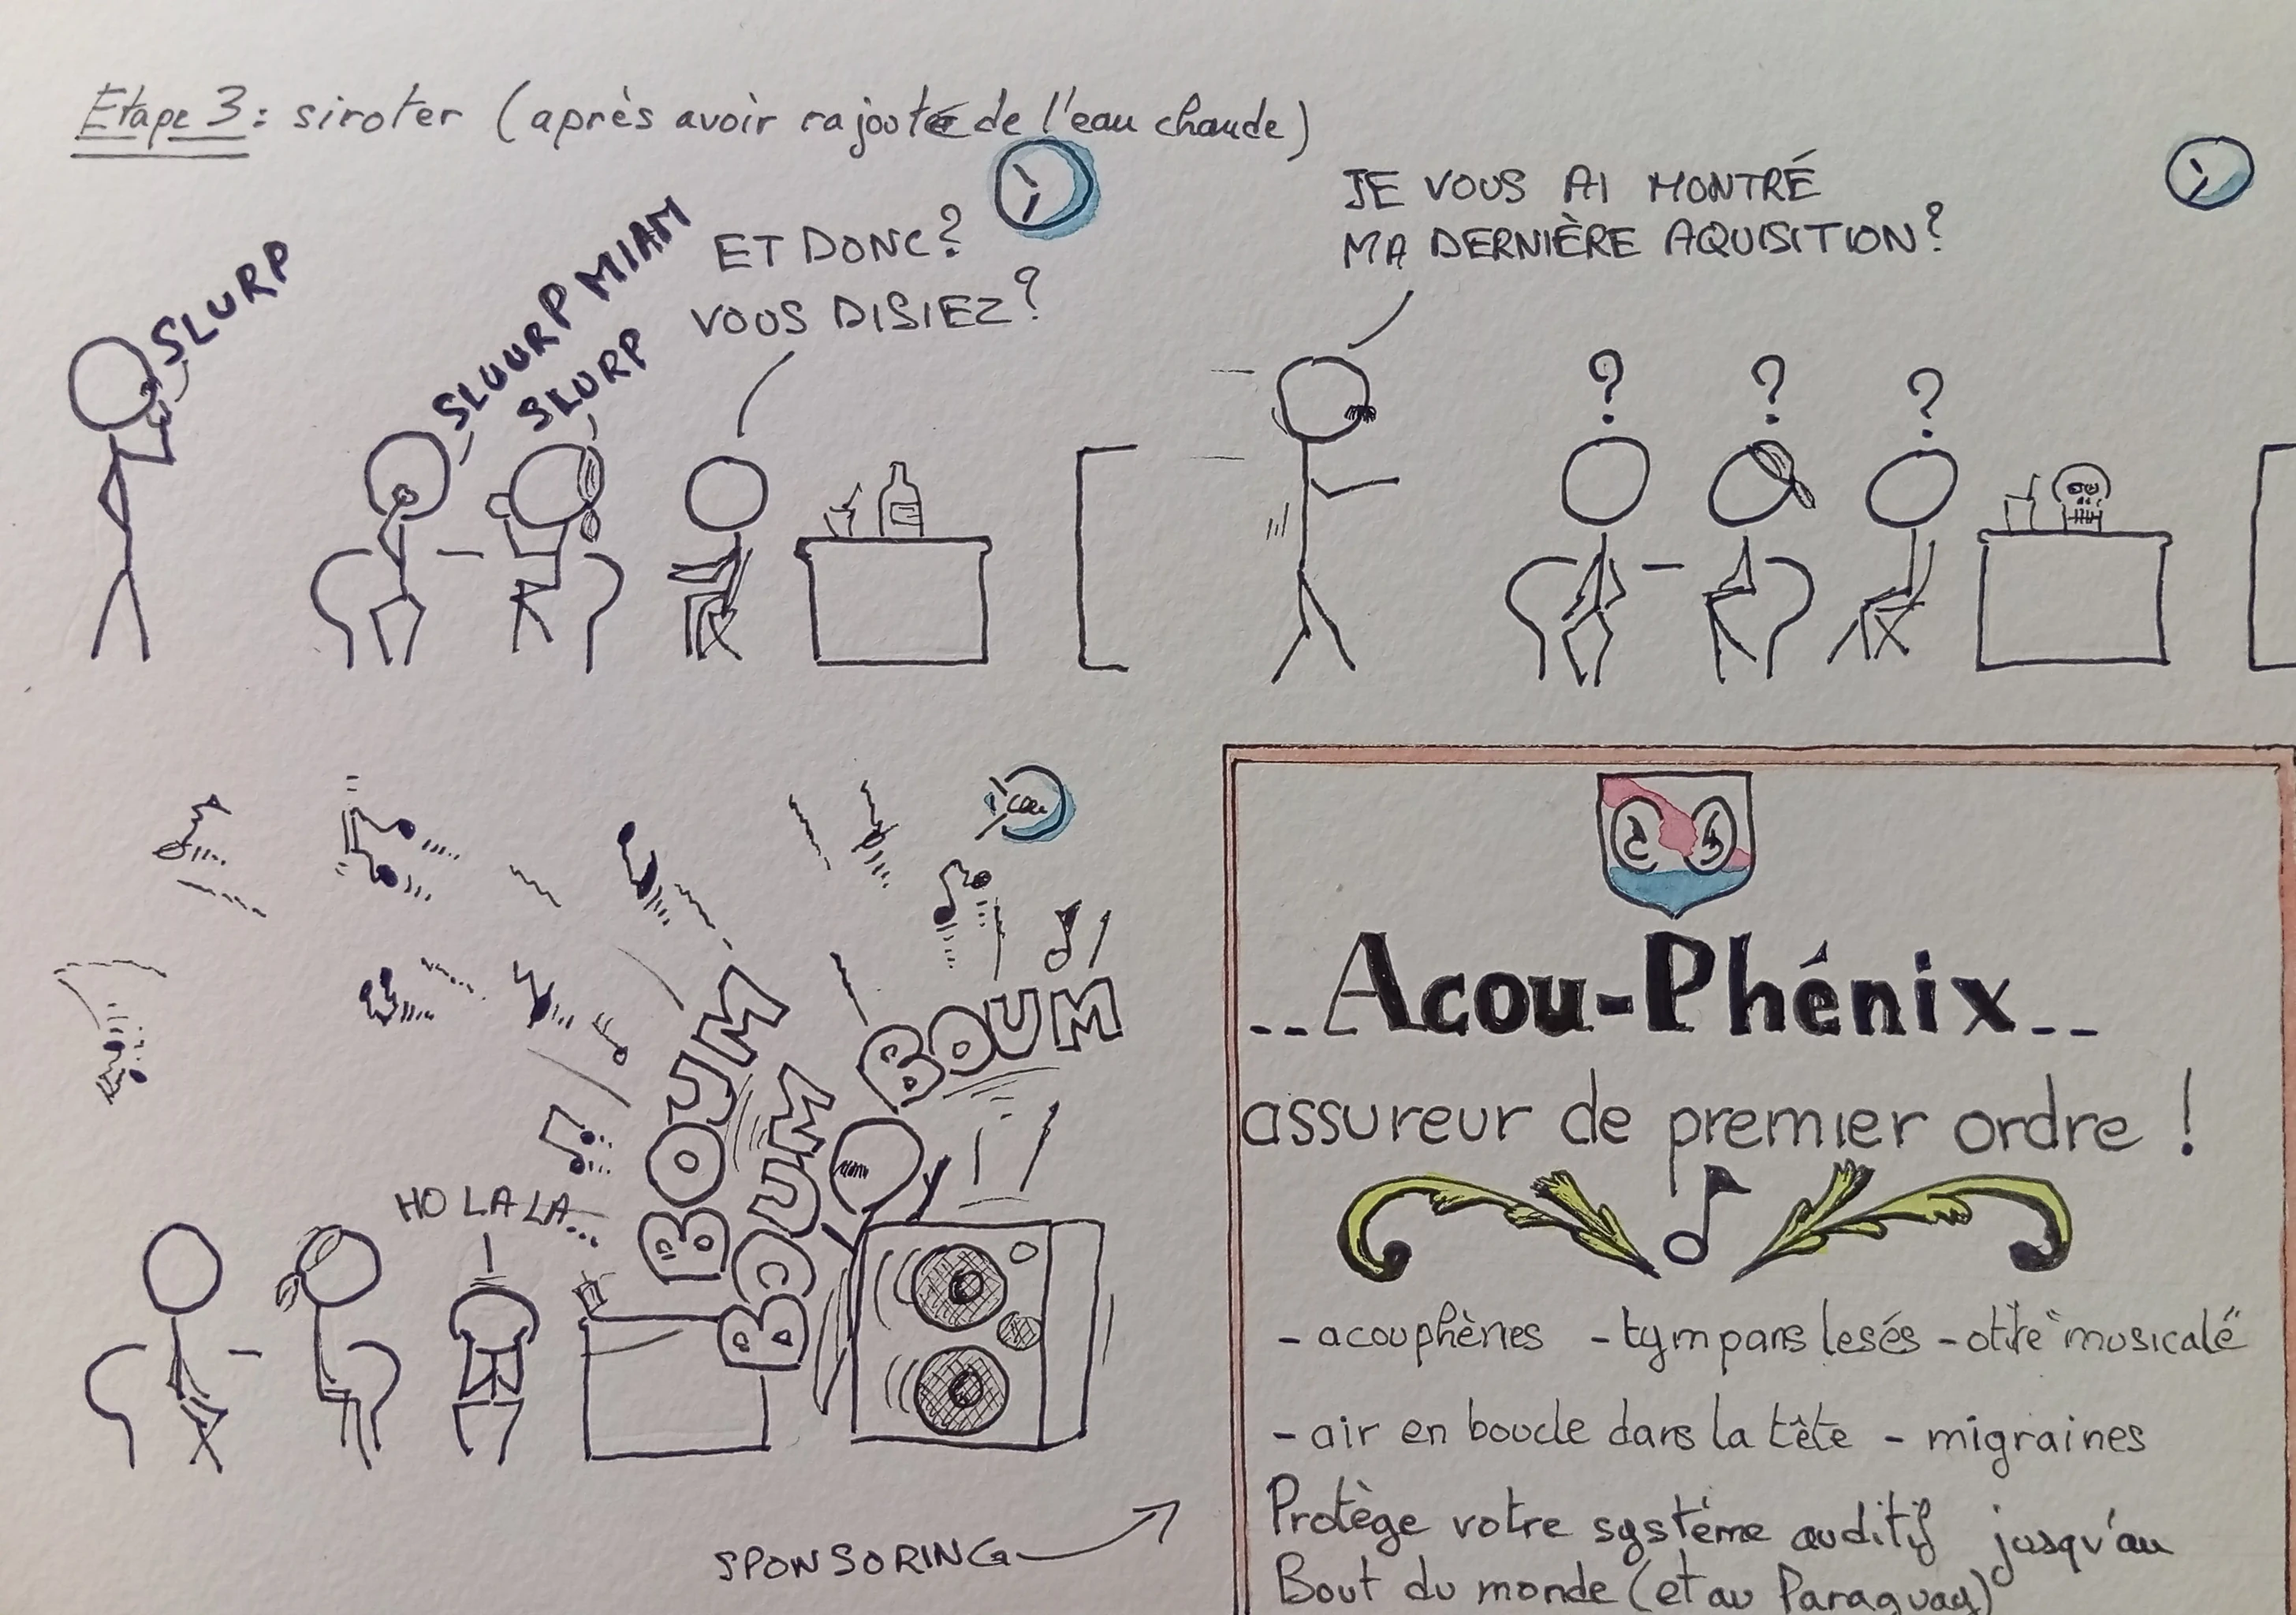 Etape 3 : siroter (après avoir rajouté de l'eau chaude)
SLURP
SLUURP MIAM
SLURP
ET DONC?
VOUS DISIEZ?
JE VOUS AI MONTRÉ
MA DERNIÈRE AQUISITION?
?
?
?
HO LA LA...
BOUM
BOUM
BOUM
SPONSORING
Acou-Phénix
assureur de premier ordre !
- acouphènes - tympans lesés - otite "musicale"
- air en boucle dans la tête - migraines
Protège votre système auditif jusqu'au
Bout du monde (et au Paraguay)